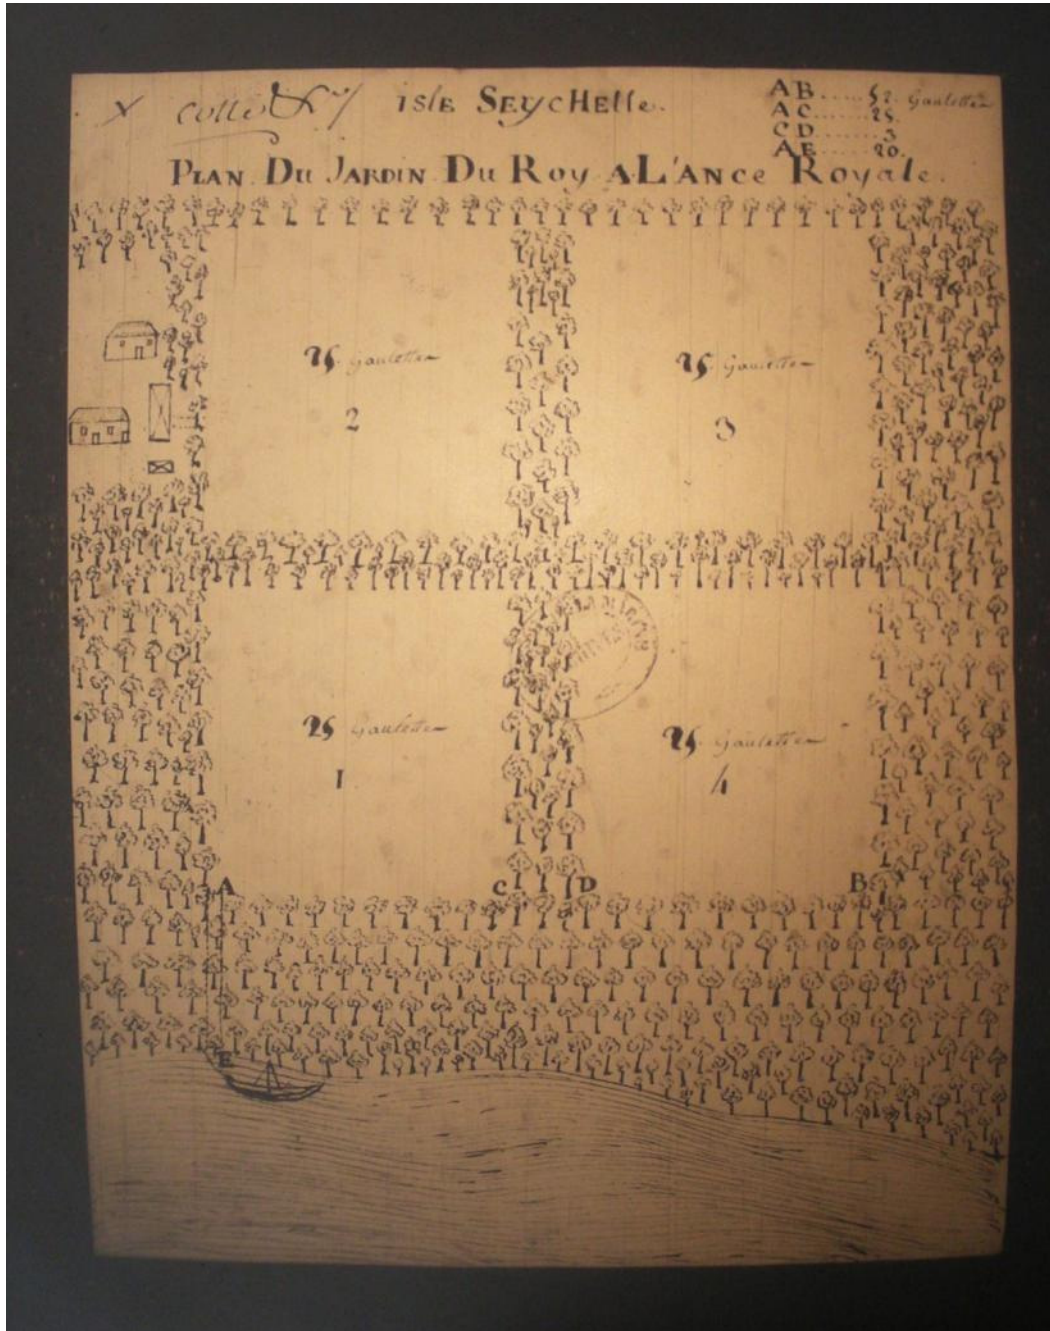 isle SEycHElle.
AB ..... 52. Gaulettes
AC ..... 25
CD ..... 3
AE ..... 20.
PLAN Du JARDIN Du Roy A L'ANce Royale.
25. Gaulettes
25. Gaulettes
2
3
25 Gaulettes
25. Gaulettes
1
4
A C D B
E